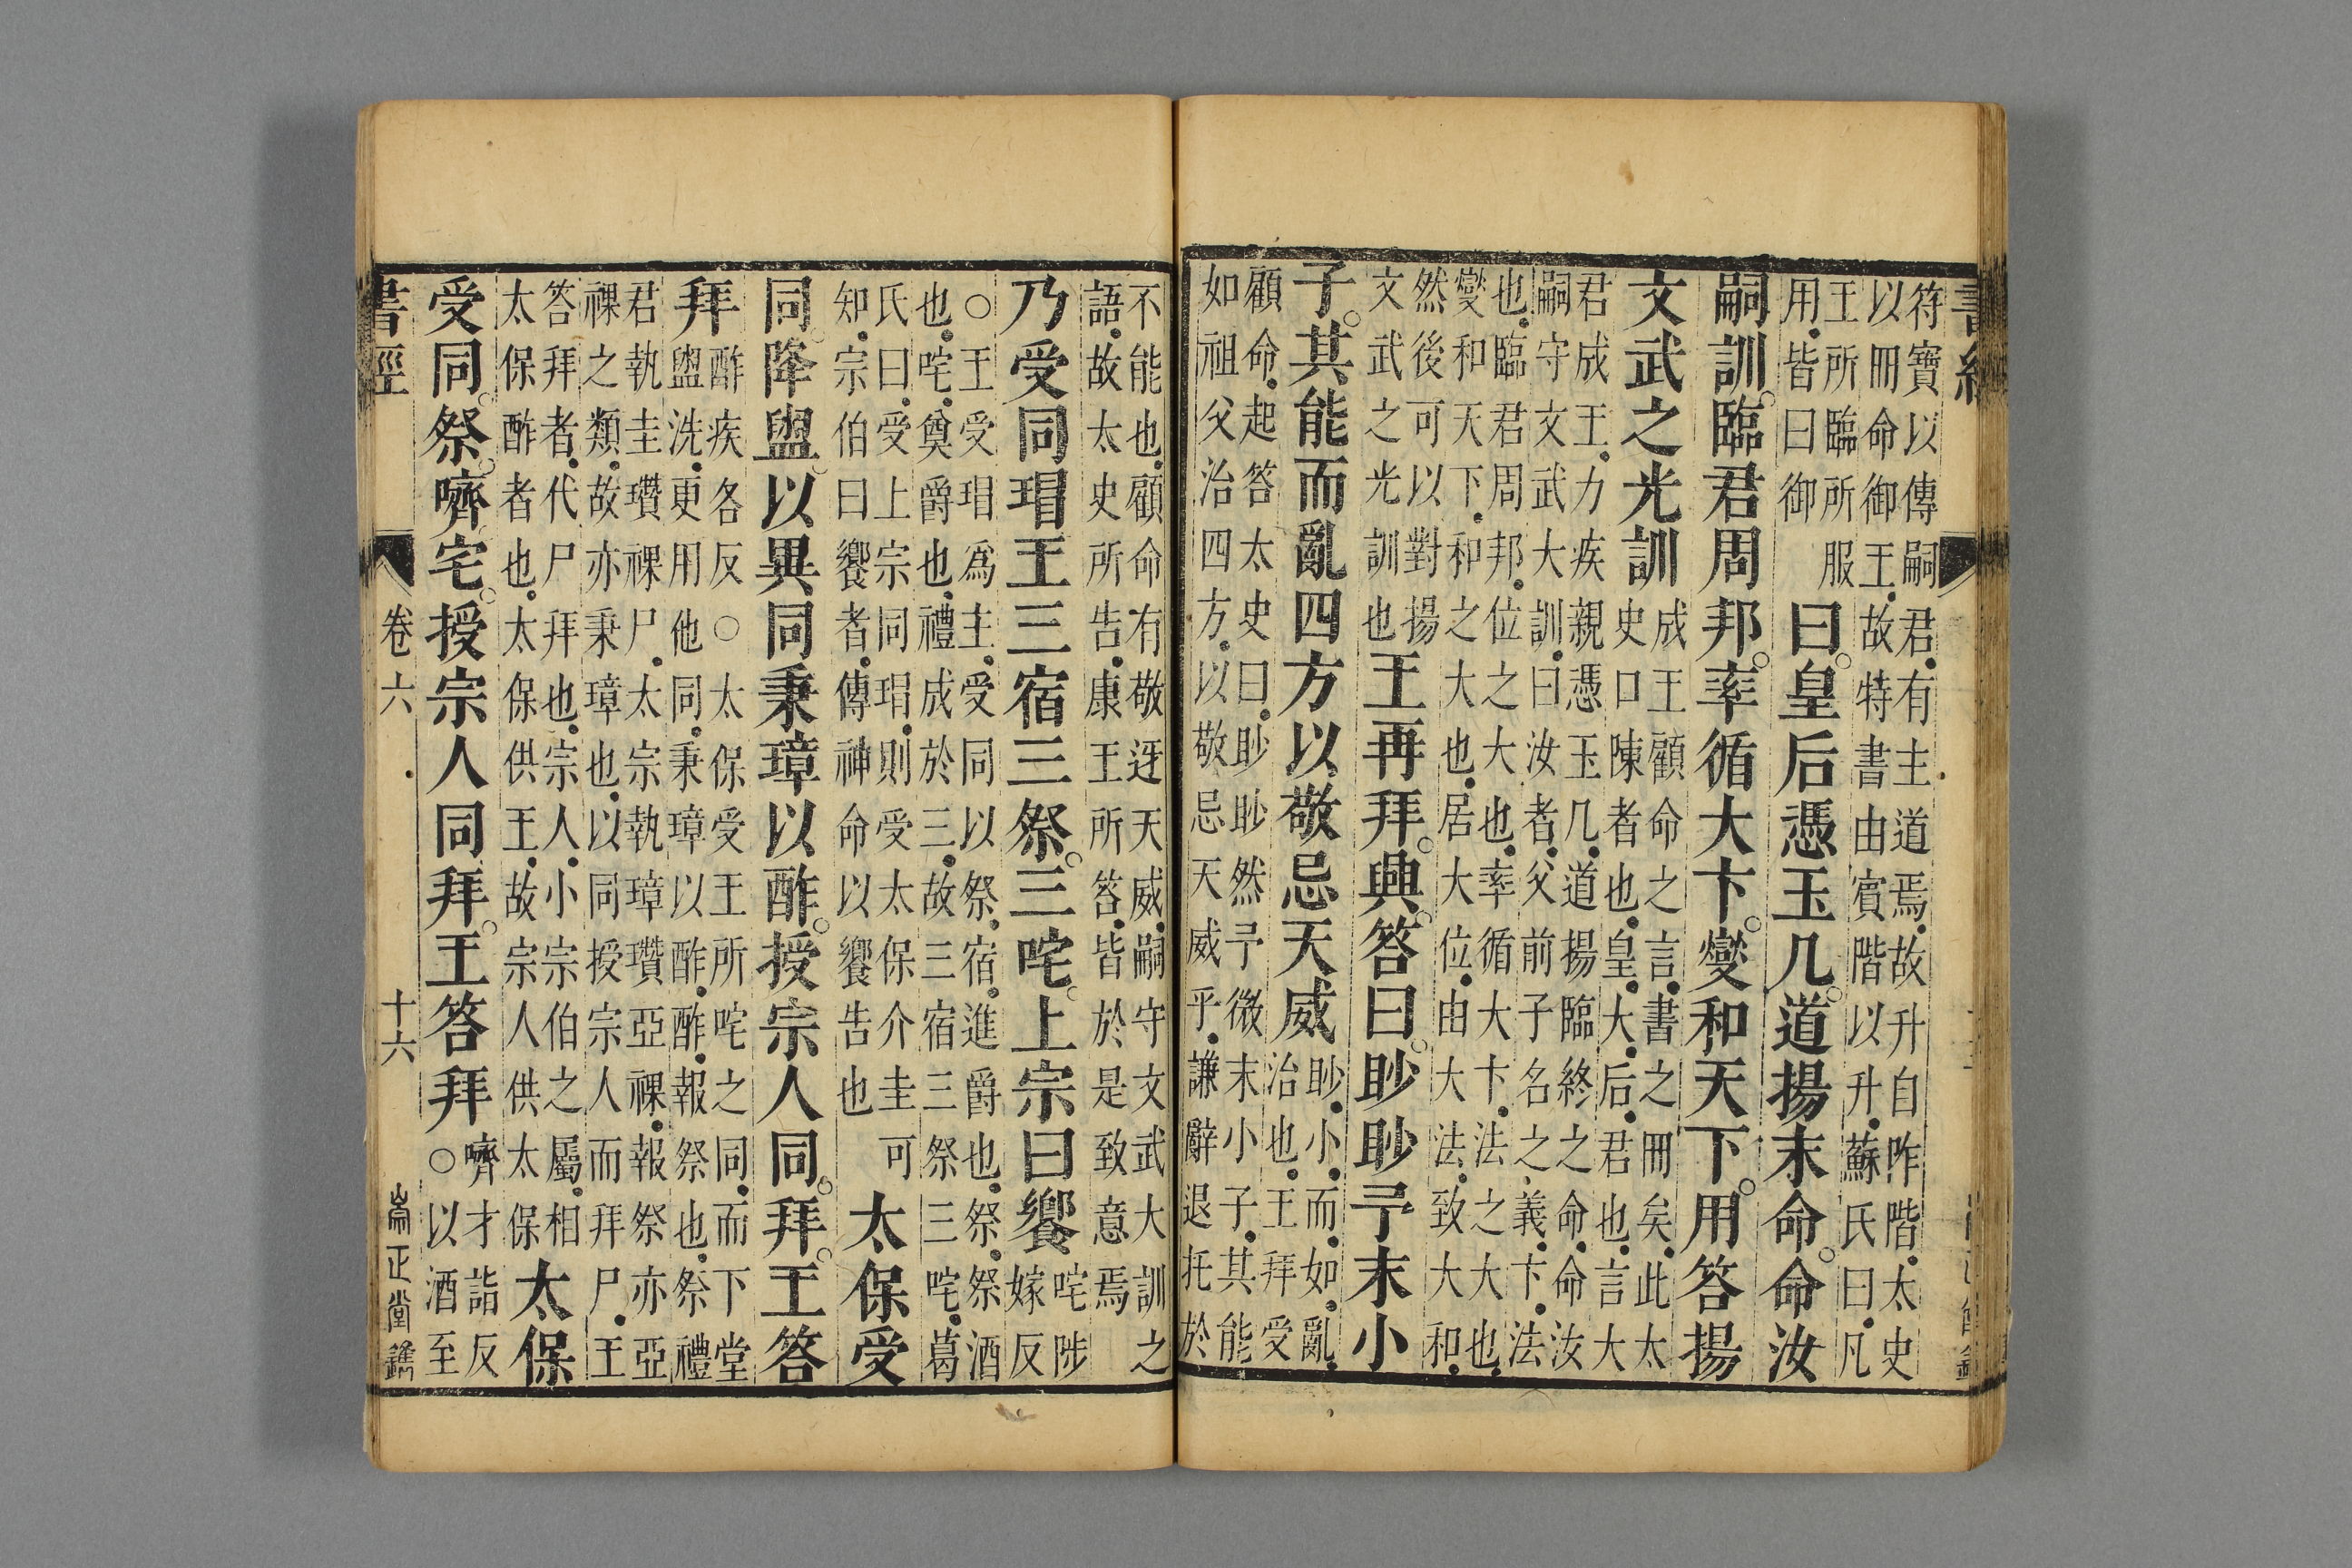 符寶以傳嗣君有主道焉故升自阼階太史
以冊命御王故特書由賓階以升蘇氏曰凡
王所臨所服
用皆曰御
曰皇后憑玉几道揚末命命汝
嗣訓臨君周邦率循大卞燮和天下用答揚
文武之光訓
成王顧命之言書之冊矣此太
史口陳者也皇大后君也言大
君成王力疾親憑玉几道揚臨終之命命汝
嗣守文武大訓曰汝者父前子名之義卞法
也臨君周邦位之大也率循大卞法之大也
燮和天下和之大也居大位由大法致大和
然後可以對揚
文武之光訓也
王再拜興答曰眇眇予末小
子其能而亂四方以敬忌天威
眇小而如亂
治也王拜受
顧命起答太史曰眇眇然予微末小子其能
如祖父治四方以敬忌天威乎謙辭退托於
不能也顧命有敬迓天威嗣守文武大訓之
語故太史所告康王所答皆於是致意焉
乃受同瑁王三宿三祭三咤上宗曰饗
咤陟
嫁反
○王受瑁爲主受同以祭宿進爵也祭祭酒
也咤奠爵也禮成於三故三宿三祭三咤葛
氏曰受上宗同瑁則受太保介圭可
知宗伯曰饗者傳神命以饗告也
太保受
同降盥以異同秉璋以酢授宗人同拜王答
拜
酢疾各反○太保受王所咤之同而下堂
盥洗更用他同秉璋以酢酢報祭也祭禮
君執圭瓚祼尸太宗執璋瓚亞祼報祭亦亞
祼之類故亦秉璋也以同授宗人而拜尸王
答拜者代尸拜也宗人小宗伯之屬相
太保酢者也太保供王故宗人供太保
太保
受同祭嚌宅授宗人同拜王答拜
嚌才詣反
○以酒至
書經
卷六
十六
崙正堂鐫